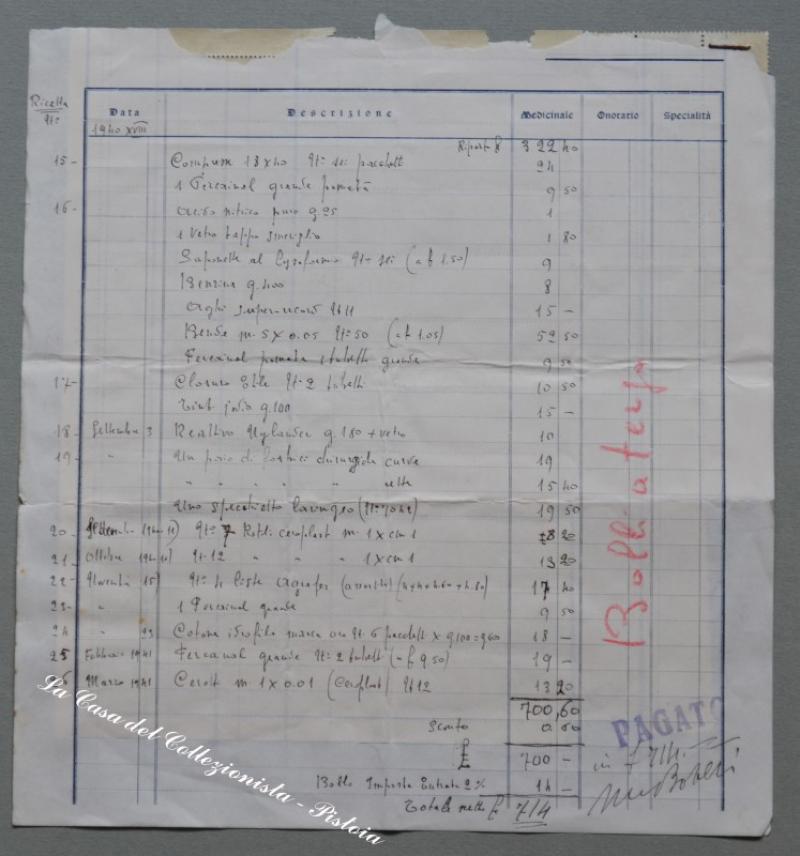 Ricetta
N°
Data Descrizione Medicinale Onorario Specialità
1940 XVIII
Riporto £ 322 40
15 - Compresse 18x40 N° sei pacchetti 24
1 Fercainal grande pomata 9 50
16 - Acido nitrico puro g. 25 1
1 vetro tappo smeriglio 1 80
Saponette al Lysoformio N° sei (a £ 1.50) 9
Benzina g. 400 8
Aghi N° 11 15 -
Bende m. 5 x 0.05 N° 50 (a £ 1.05) 52 50
Fercainal pomata 1 tubetto grande 9 50
17 - Cloruro Etile N° 2 tubetti 10 50
Tint. jodio g. 100 15 -
18 - Settembre 3 Reattivo Nylander g. 180 + vetro 10
19 - " Un paio di forbici chirurgiche curve 19
" " " " " rette 15 40
Uno specchietto laringeo 19 50
20 - Settembre N° 7 Rotoli ceroplast m. 1 x cm 1 20
21 - Ottobre N° 12 " " " 1 x cm 1 13 20
22 - Novembre 15 N° 4 liste Agrafes (4+4+4.60+4.80) 17 40
23 - " 1 Fercainal grande 9 50
24 " 23 Cotone idrofilo marca oro N° 6 pacchetti x g. 100 = 18 -
25 Febbraio 1941 Fercainal grande N° 2 tubetti (a £ 9.50) 19 -
Marzo 1941 Cerotti m. 1 x 0.01 (Ceroplast) N° 12 13 20
700,60
Sconto 0 60
£ 700 -
Bollo Imposta Entrata 2% 14 -
Totale netto £ 714
Bolli a tergo
PAGATO
in £ 714.
La Casa del Collezionista - Pistoia